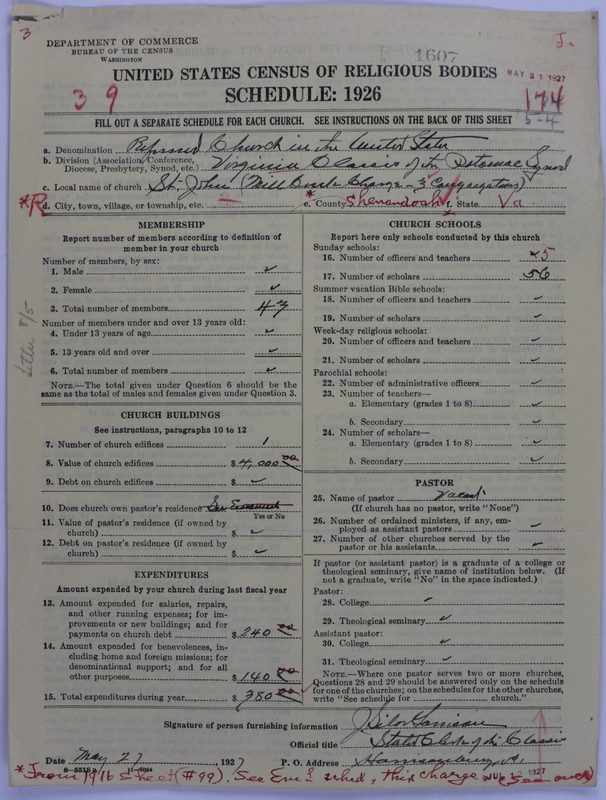 3
J.
DEPARTMENT OF COMMERCE
BUREAU OF THE CENSUS
WASHINGTON
1607
MAY 31 1927
UNITED STATES CENSUS OF RELIGIOUS BODIES
39
SCHEDULE: 1926
174
5-4
FILL OUT A SEPARATE SCHEDULE FOR EACH CHURCH. SEE INSTRUCTIONS ON THE BACK OF THIS SHEET
a. Denomination Reformed Church in the United States
b. Division (Association, Conference, Diocese, Presbytery, Synod, etc.) Virginia Classis of the Potomac Synod
c. Local name of church St. John (Mill Creek Charge - 3 Congregations)
*R d. City, town, village, or township, etc. * e. County Shenandoah f. State Va
MEMBERSHIP
Report number of members according to definition of
member in your church
Number of members, by sex:
1. Male ✓
2. Female ✓
3. Total number of members 43
Number of members under and over 13 years old:
4. Under 13 years of age ✓
5. 13 years old and over ✓
6. Total number of members ✓
NOTE.—The total given under Question 6 should be the
same as the total of males and females given under Question 3.
Letter 7/5-
CHURCH BUILDINGS
See instructions, paragraphs 10 to 12
7. Number of church edifices 1
8. Value of church edifices $4,000 00
9. Debt on church edifices $ ✓
10. Does church own pastor's residence
Yes or No
11. Value of pastor's residence (if owned by
church) $ ✓
12. Debt on pastor's residence (if owned by
church) $ ✓
EXPENDITURES
Amount expended by your church during last fiscal year
13. Amount expended for salaries, repairs,
and other running expenses; for im-
provements or new buildings; and for
payments on church debt $240 00
14. Amount expended for benevolences, in-
cluding home and foreign missions; for
denominational support; and for all
other purposes $140 00
15. Total expenditures during year $380 00 ✓
CHURCH SCHOOLS
Report here only schools conducted by this church
Sunday schools:
16. Number of officers and teachers *5
17. Number of scholars 56
Summer vacation Bible schools:
18. Number of officers and teachers ✓
19. Number of scholars ✓
Week-day religious schools:
20. Number of officers and teachers ✓
21. Number of scholars ✓
Parochial schools:
22. Number of administrative officers ✓
23. Number of teachers—
a. Elementary (grades 1 to 8) ✓
b. Secondary ✓
24. Number of scholars—
a. Elementary (grades 1 to 8) ✓
b. Secondary ✓
PASTOR
25. Name of pastor Vacant
(If church has no pastor, write "None")
26. Number of ordained ministers, if any, em-
ployed as assistant pastors ✓
27. Number of other churches served by the
pastor or his assistants ✓
If pastor (or assistant pastor) is a graduate of a college or
theological seminary, give name of institution below. (If
not a graduate, write "No" in the space indicated.)
Pastor:
28. College ✓
29. Theological seminary ✓
Assistant pastor:
30. College ✓
31. Theological seminary ✓
NOTE.—Where one pastor serves two or more churches,
Questions 28 and 29 should be answered only on the schedule
for one of the churches; on the schedules for the other churches,
write "See schedule for church."
Signature of person furnishing information J Silor Garrison
Official title Stated Clerk of the Classis
Date May 27 1927 P. O. Address Harrisonburg, Va.
*From 1916 sheet (#99). See Em sched, this charge (See over)
1927